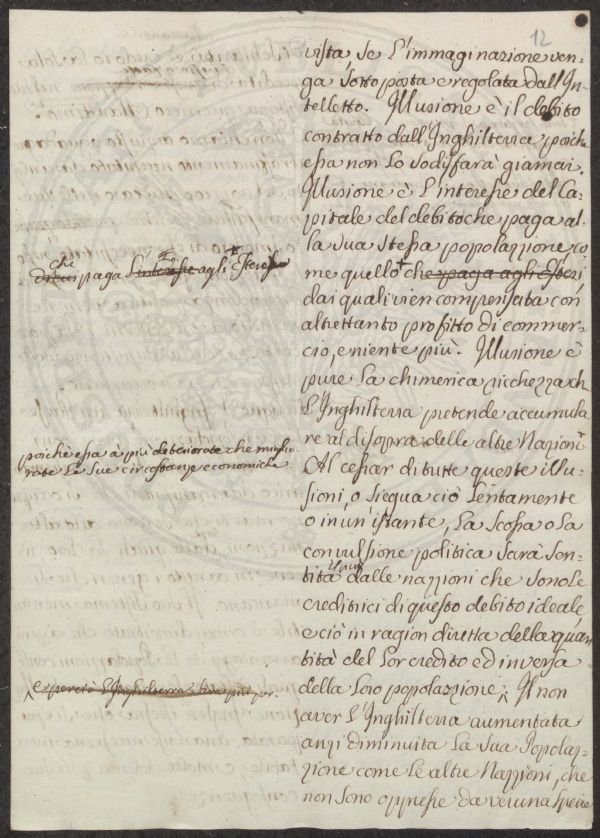 12
vista, se l'immaginazione ven=
ga sottoposta e regolata dall'In=
telletto. Illusione è il debito
contratto dall'Inghilterra poichè
essa non lo sodisfarà giamai.
Illusione è l'interesse del Ca=
pitale del debito che paga al=
la sua stessa popolazzione, co
me quello + che paga agli Esteri,
dai quali vien compensata con
altrettanto profitto di commer=
cio, e niente più. Illusione è
pure la chimerica ricchezza ch
l'Inghilterra pretende accumula
re al di sopra delle altre Nazioni
Al cessar di tutte queste illu=
sioni, o siegua ciò lentamente
o in un istante, la scossa o la
convulsione politica sarà sen=
tita dalle nazzioni che sono le
creditrici di questo debito ideale,
e ciò in ragion diretta della quan
tità del lor credito ed inversa
della loro popolazzione. Il non
aver l'Inghilterra aumentata
anzi diminuita la sua Popolaz=
zione come le altre Nazzioni, che
non sono oppresse da veruna specie
che paga l'interesse agli Esteri
poichè essa à più deteriorate che miglio
rate le sue circostanze economiche.
e perciò l'Inghilterra